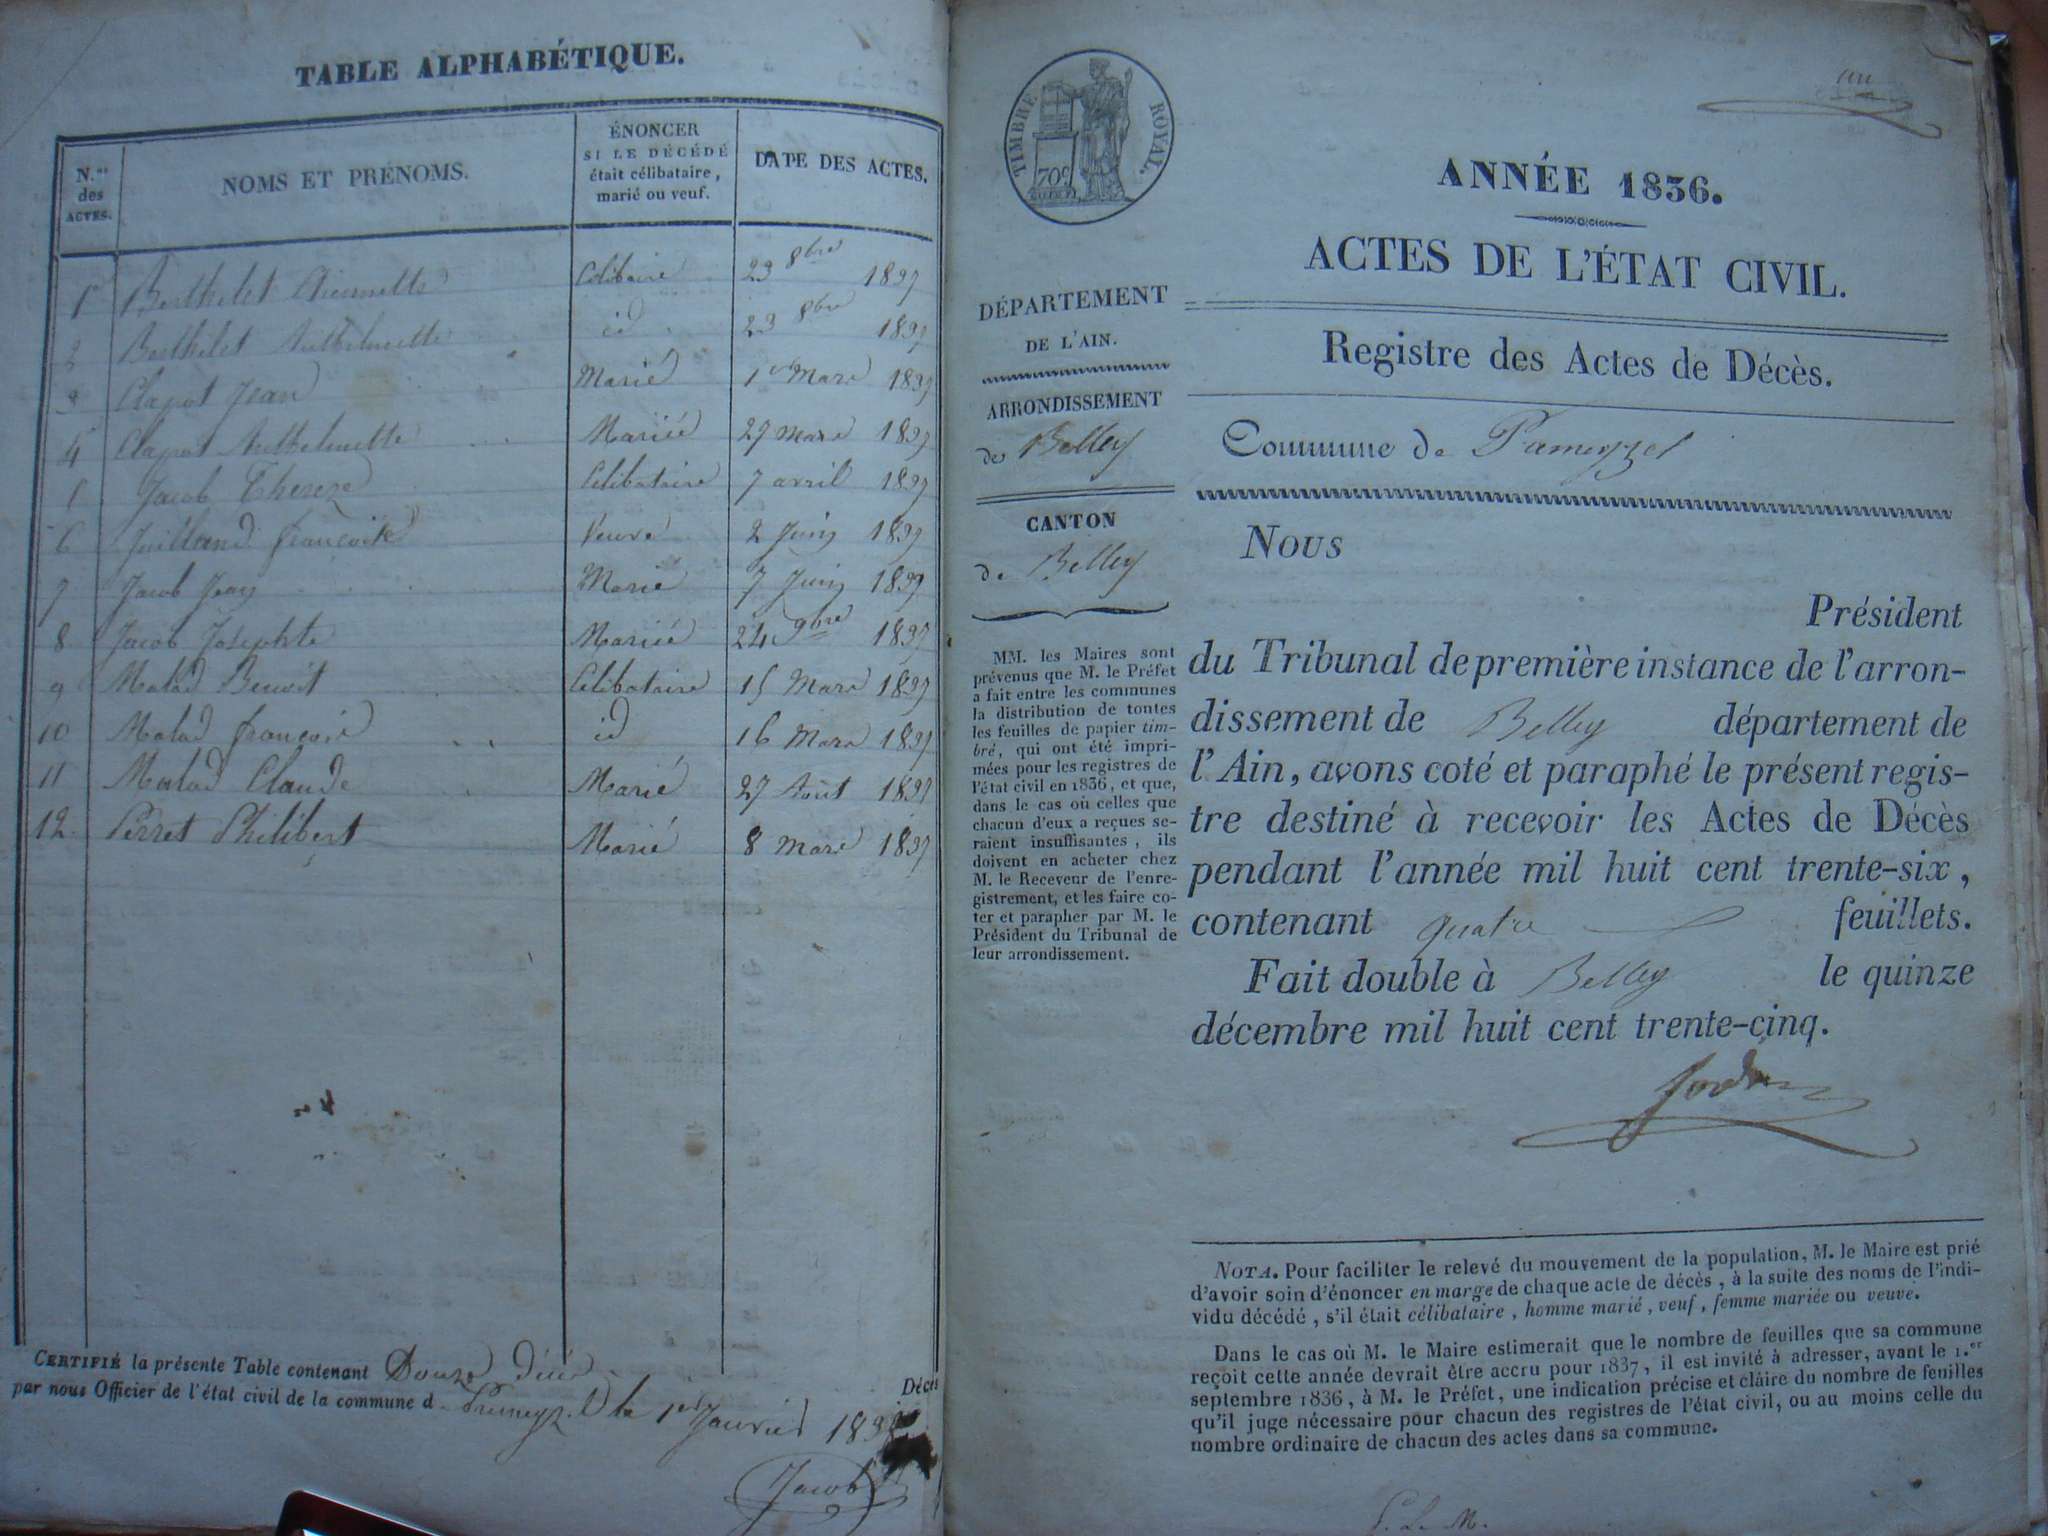 TABLE ALPHABÉTIQUE.
N.os des ACTES.
NOMS ET PRÉNOMS.
ÉNONCER
SI LE DÉCÉDÉ
était célibataire,
marié ou veuf.
DATE DES ACTES.
1 Berthelet Célibaire 23 8bre 1837
2 Berthelet Anthelmette id 23 8bre 1837
3 Clapot Jean Marié 1er Mars 1837
4 Clapot Anthelmette Mariée 27 mars 1837
Jacob Thereze Célibataire 7 avril 1837
6 françoise Veuve 2 Juin 1837
7 Jacob Jean Marié 7 Juin 1837
8 Jacob Josephte Mariée 24 9bre 1837
9 Malod Benoit Célibataire 15 Mars 1837
10 Malod françois id 16 Mars 1837
11 Malod Claude Marié 27 Août 1837
12 Perret Philibert Marié 8 mars 1837
CERTIFIÉ la présente Table contenant Douze Décès
par nous Officier de l'état civil de la commune d le 1er Janvier 1838
Jacob
TIMBRE ROYAL.
70c
DÉPARTEMENT
DE L'AIN.
ARRONDISSEMENT
de Belley
CANTON
de Belley
MM. les Maires sont
prévenus que M. le Préfet
a fait entre les communes
la distribution de toutes
les feuilles de papier tim-
bré, qui ont été impri-
mées pour les registres de
l'état civil en 1836, et que,
dans le cas où celles que
chacun d'eux a reçues se-
raient insuffisantes, ils
doivent en acheter chez
M. le Receveur de l'enre-
gistrement, et les faire co-
ter et parapher par M. le
Président du Tribunal de
leur arrondissement.
ANNÉE 1836.
ACTES DE L'ÉTAT CIVIL.
Registre des Actes de Décès.
Commune de Pameyzel
NOUS
Président
du Tribunal de première instance de l'arron-
dissement de Belley département de
l'Ain, avons coté et paraphé le présent regis-
tre destiné à recevoir les Actes de Décès
pendant l'année mil huit cent trente-six,
contenant quatre feuillets.
Fait double à Belley le quinze
décembre mil huit cent trente-cinq.
NOTA. Pour faciliter le relevé du mouvement de la population, M. le Maire est prié
d'avoir soin d'énoncer en marge de chaque acte de décès, à la suite des noms de l'indi-
vidu décédé, s'il était célibataire, homme marié, veuf, femme mariée ou veuve.
Dans le cas où M. le Maire estimerait que le nombre de feuilles que sa commune
reçoit cette année devrait être accru pour 1837, il est invité à adresser, avant le 1.er
septembre 1836, à M. le Préfet, une indication précise et claire du nombre de feuilles
qu'il juge nécessaire pour chacun des registres de l'état civil, ou au moins celle du
nombre ordinaire de chacun des actes dans sa commune.